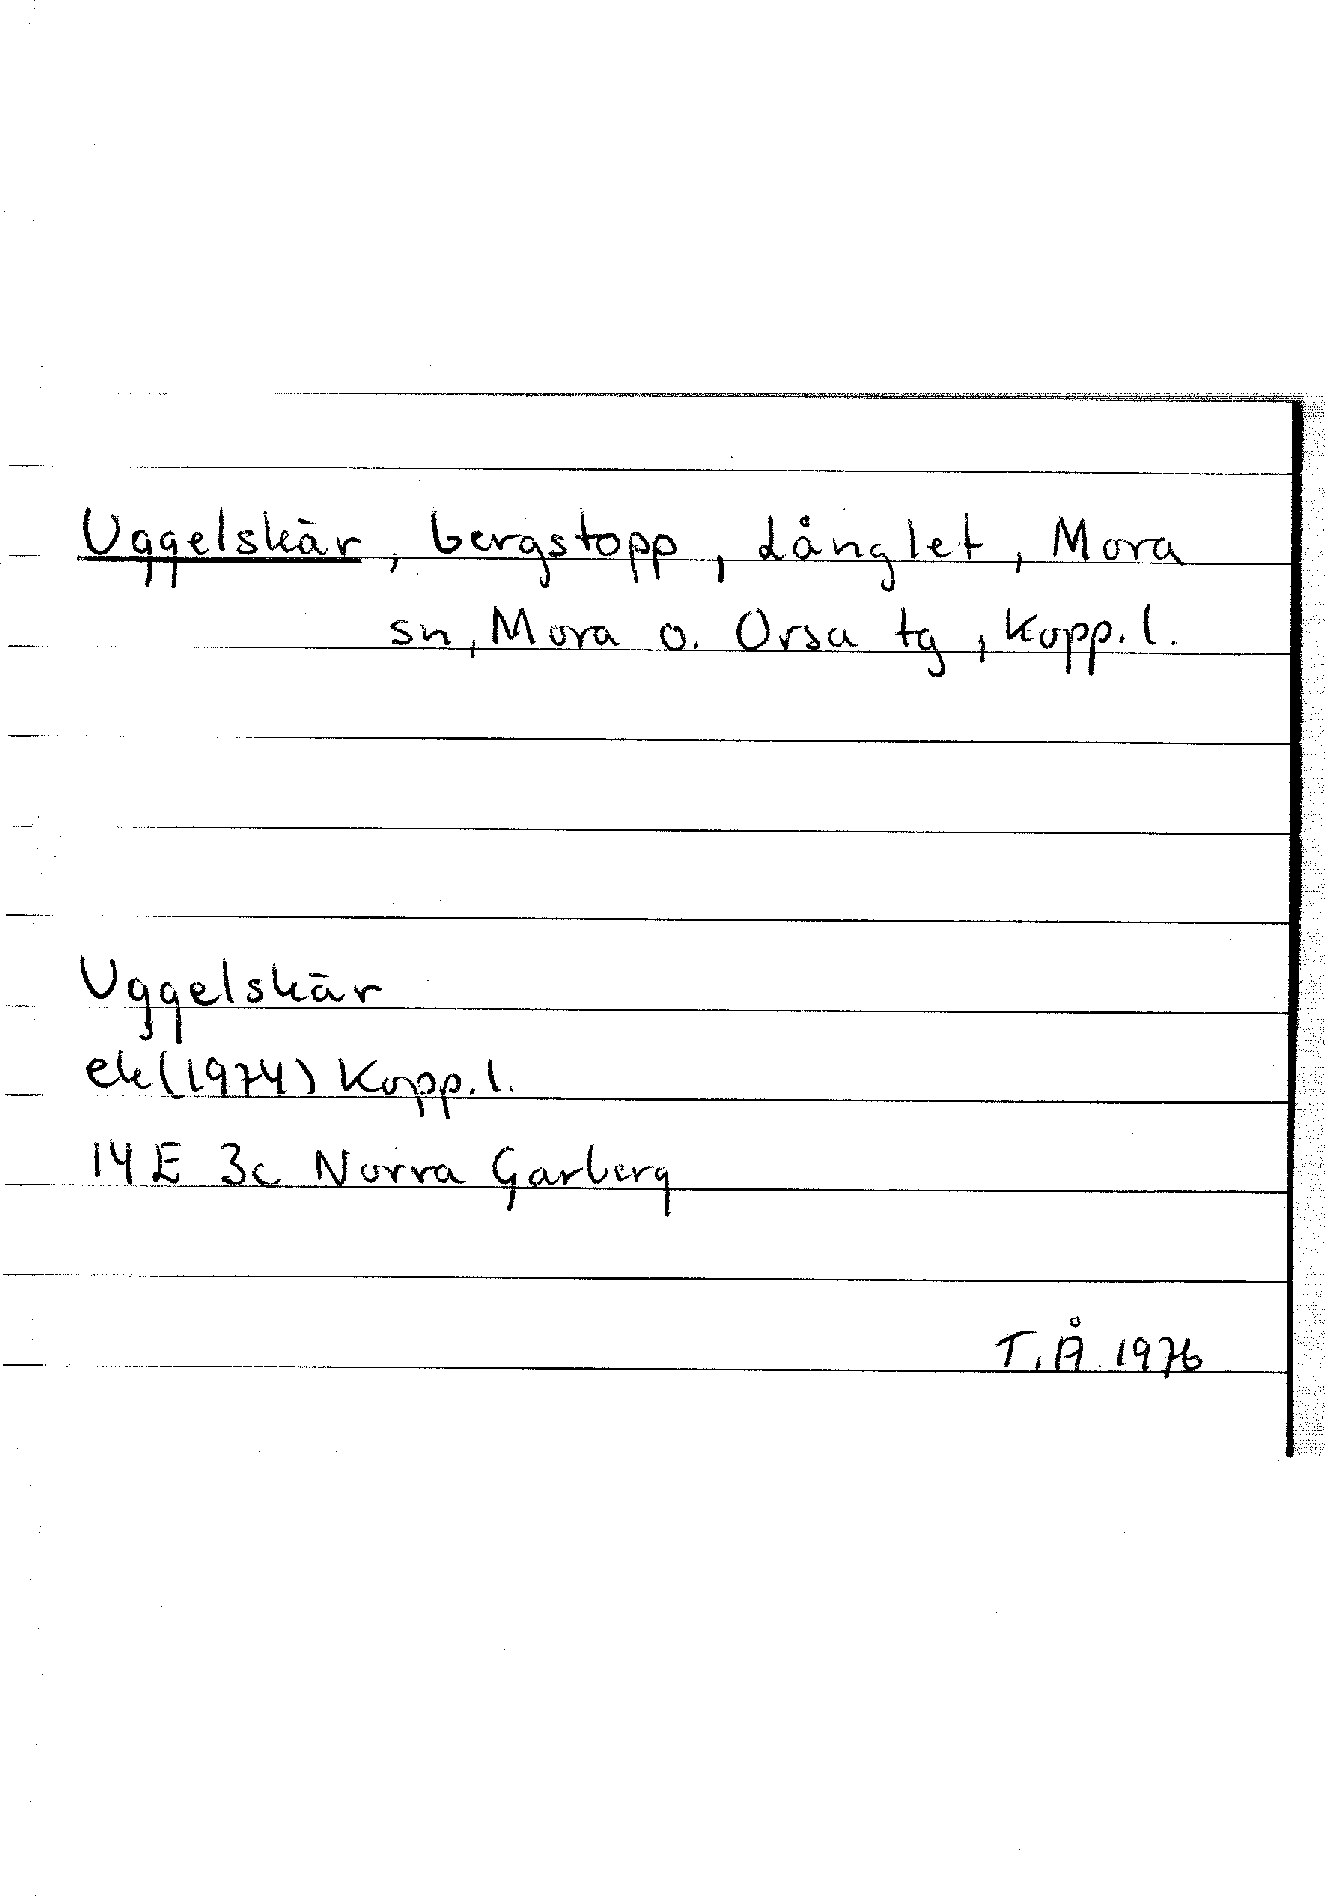 Uggelskär, bergstopp, Långlet, Mora
sn, Mora o. Orsa tg, Kopp. l.
Uggelskär
ek (1974) Kopp. l.
14E 3c Norra Garberg
T. Å 1976